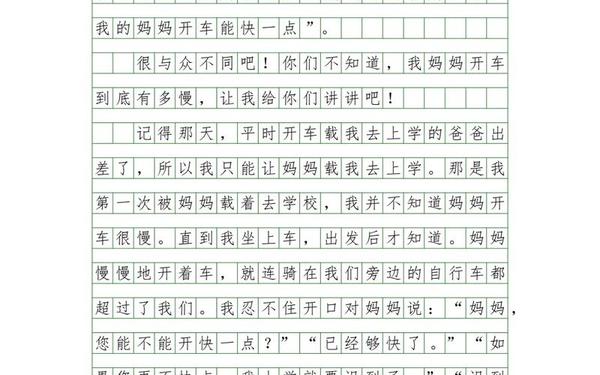 我的妈妈开车能快一点”。
很与众不同吧！你们不知道，我妈妈开车
到底有多慢，让我给你们讲讲吧！
记得那天，平时开车载我去上学的爸爸出
差了，所以我只能让妈妈载我去上学。那是我
第一次被妈妈载着去学校，我并不知道妈妈开
车很慢。直到我坐上车，出发后才知道。妈妈
慢慢地开着车，就连骑在我们旁边的自行车都
超过了我们。我忍不住开口对妈妈说：“妈妈，
您能不能开快一点？”“已经够快了。”“如